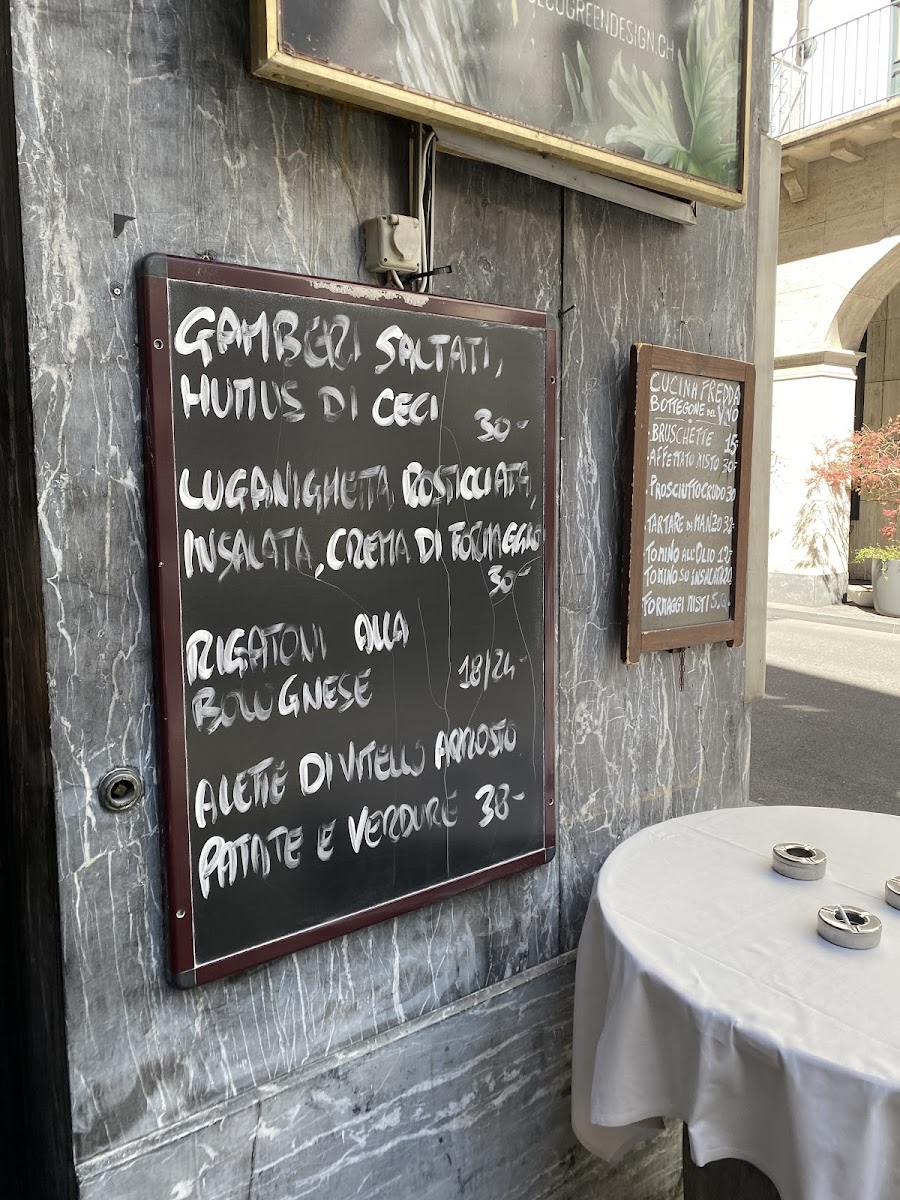 ECOGREENDESIGN.CH
GAMBERI SALTATI,
HUMUS DI CECI
30-
LUGANIGHETTA ROSTICCIATA,
INSALATA, CREMA DI FORMAGGIO
30-
RIGATONI ALLA
BOLOGNESE 18/24-
ALETTE DI VITELLO ARROSTO
PATATE E VERDURE 38-
CUCINA FREDDA
BOTTEGONE DEL VINO
BRUSCHETTE 15-
AFFETTATO MISTO 30-
PROSCIUTTO CRUDO 30
TARTARE DI MANZO 32-
TOMINO ALL'OLIO
TOMINO SU INSALATA
FORMAGGI MISTI